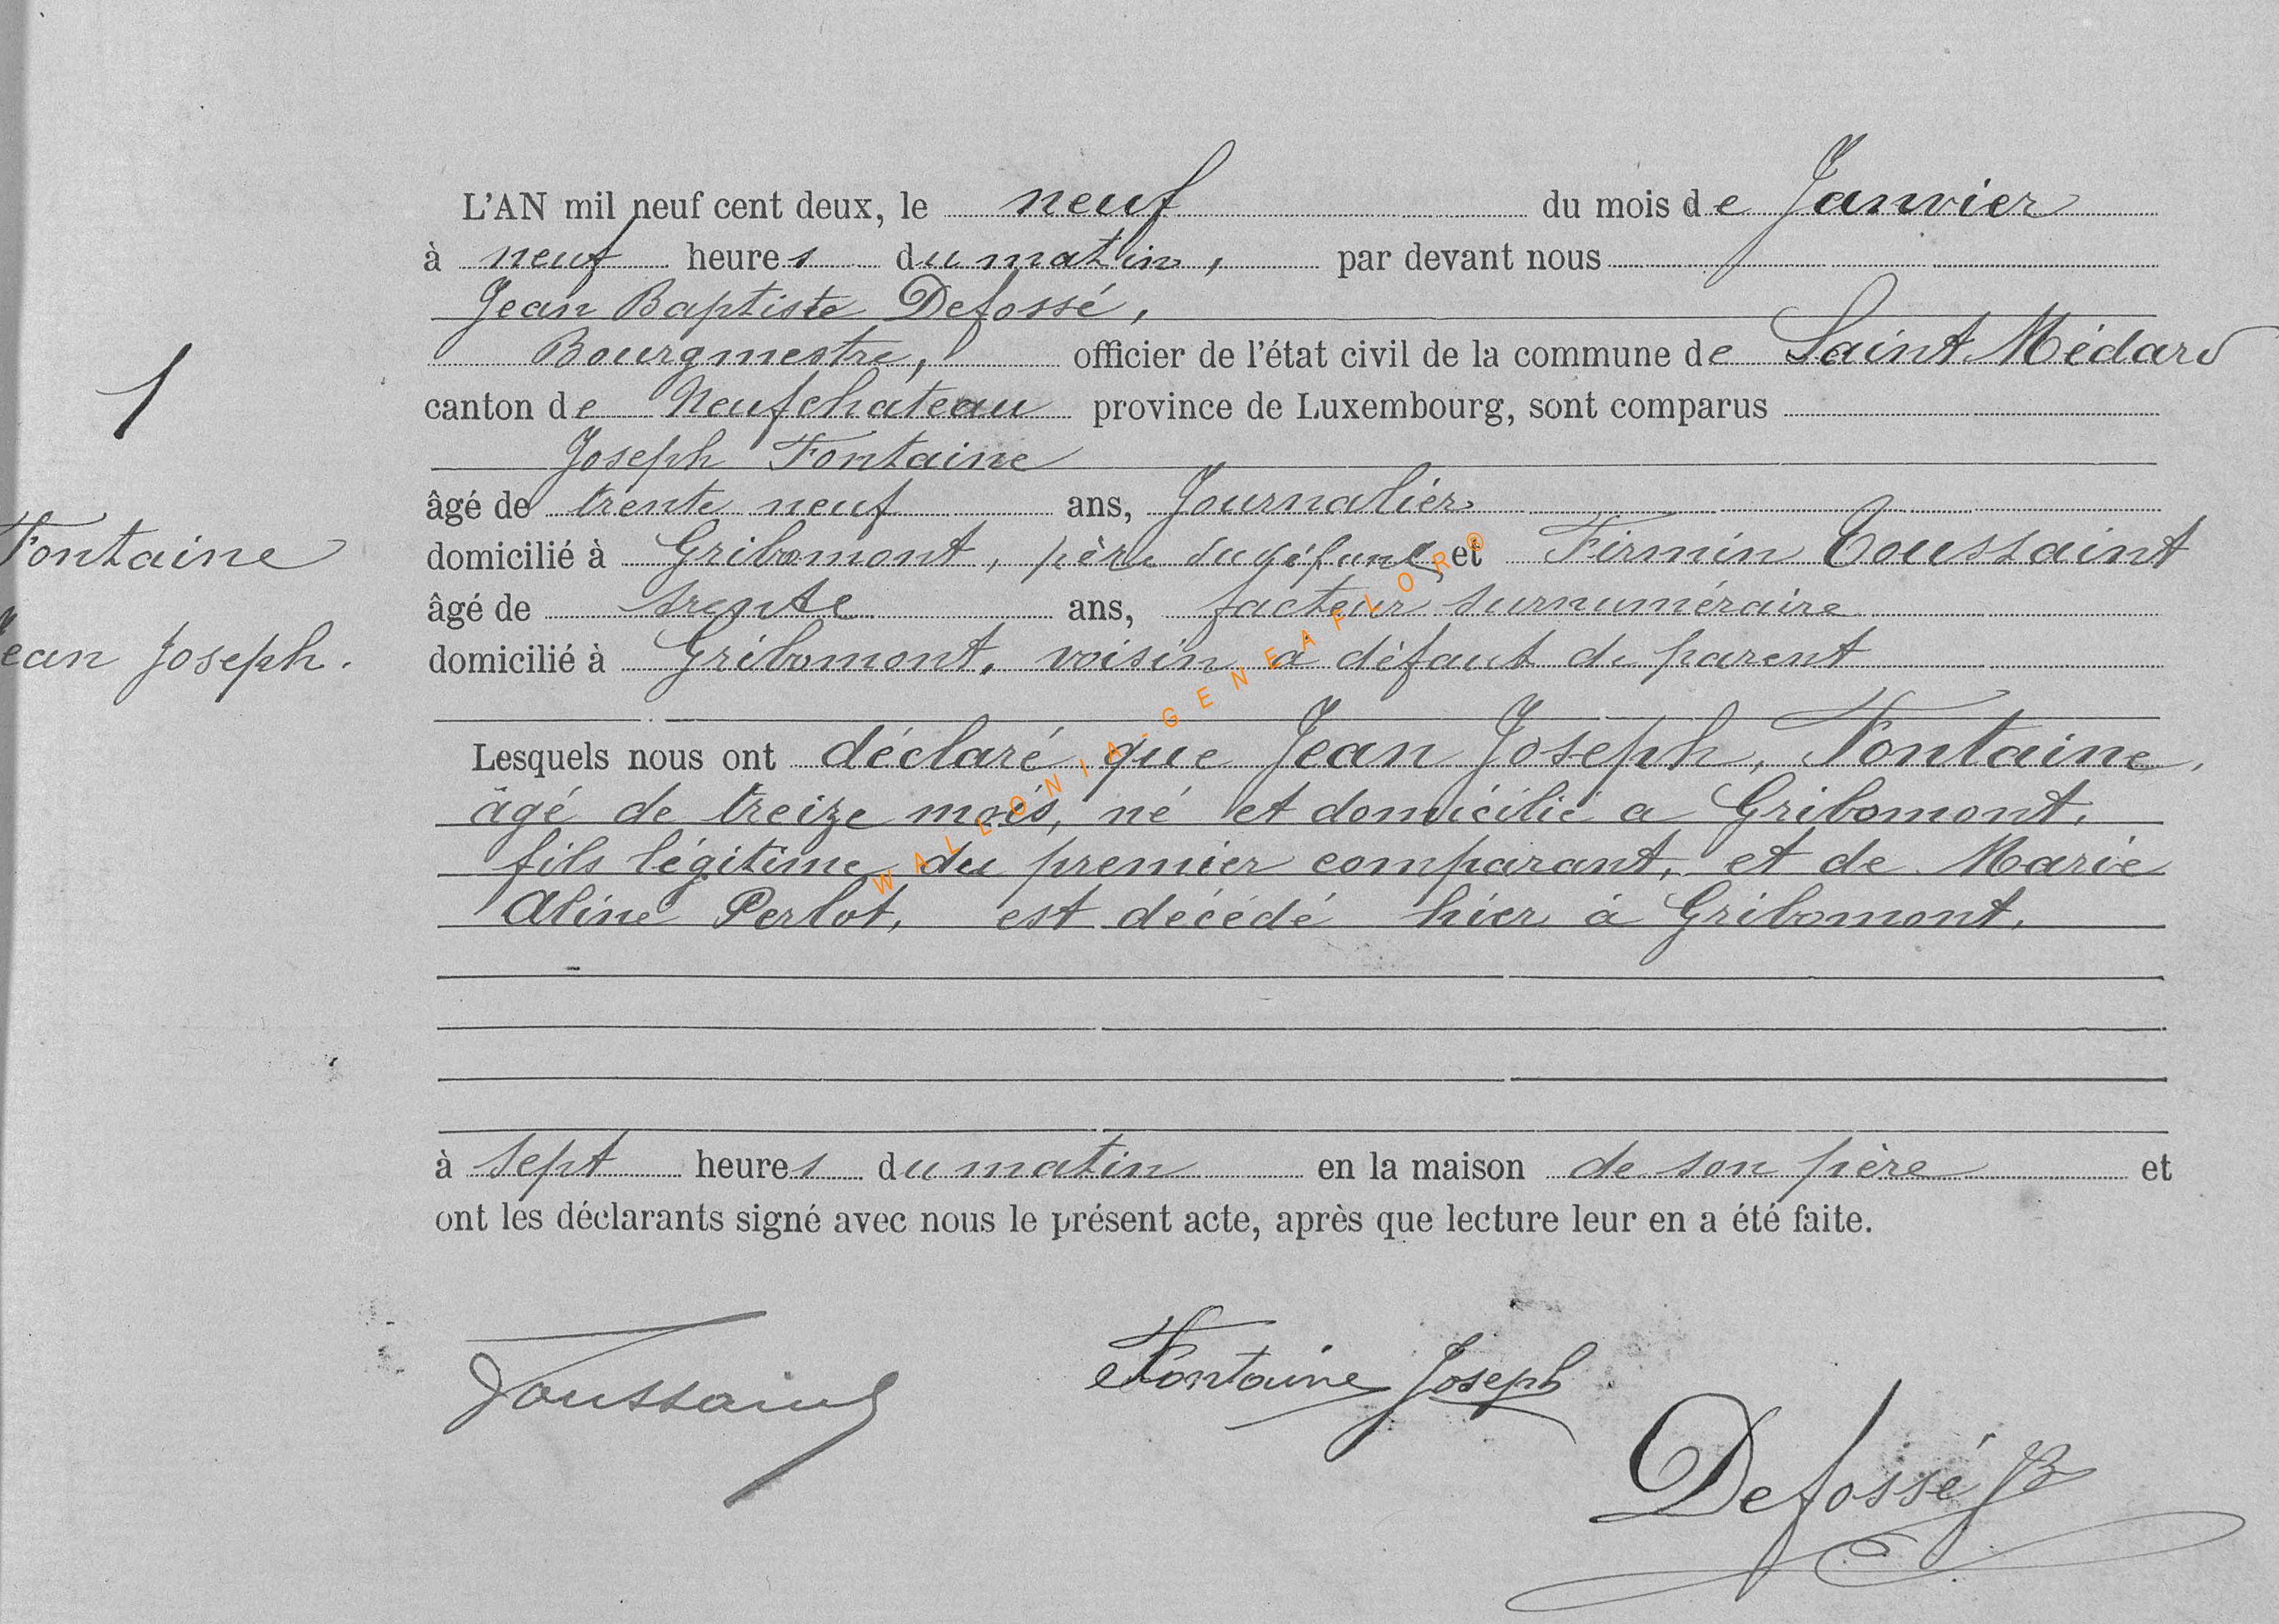 L'AN mil neuf cent deux, le neuf du mois de Janvier
à neuf heures du matin, par devant nous
Jean Baptiste Defossé,
Bourgmestre, officier de l'état civil de la commune de Saint Médard
canton de Neufchateau province de Luxembourg, sont comparus
Joseph Fontaine
âgé de trente neuf ans, Journalier
domicilié à Gribomont, père du défunt, et Firmin Toussaint
âgé de trente ans, facteur surnuméraire
domicilié à Gribomont, voisin a défaut de parent
Lesquels nous ont déclaré que Jean Joseph, Fontaine,
âgé de treize mois, né et domicilié a Gribomont,
fils légitime du premier comparant, et de Marie
Aline Perlot, est décédé hier à Gribomont,
à sept heures du matin en la maison de son père et
ont les déclarants signé avec nous le présent acte, après que lecture leur en a été faite.
1
Fontaine
Jean Joseph.
Toussaint
Fontaine Joseph
Defossé JB
WALLONIA-GENEAFLOR©